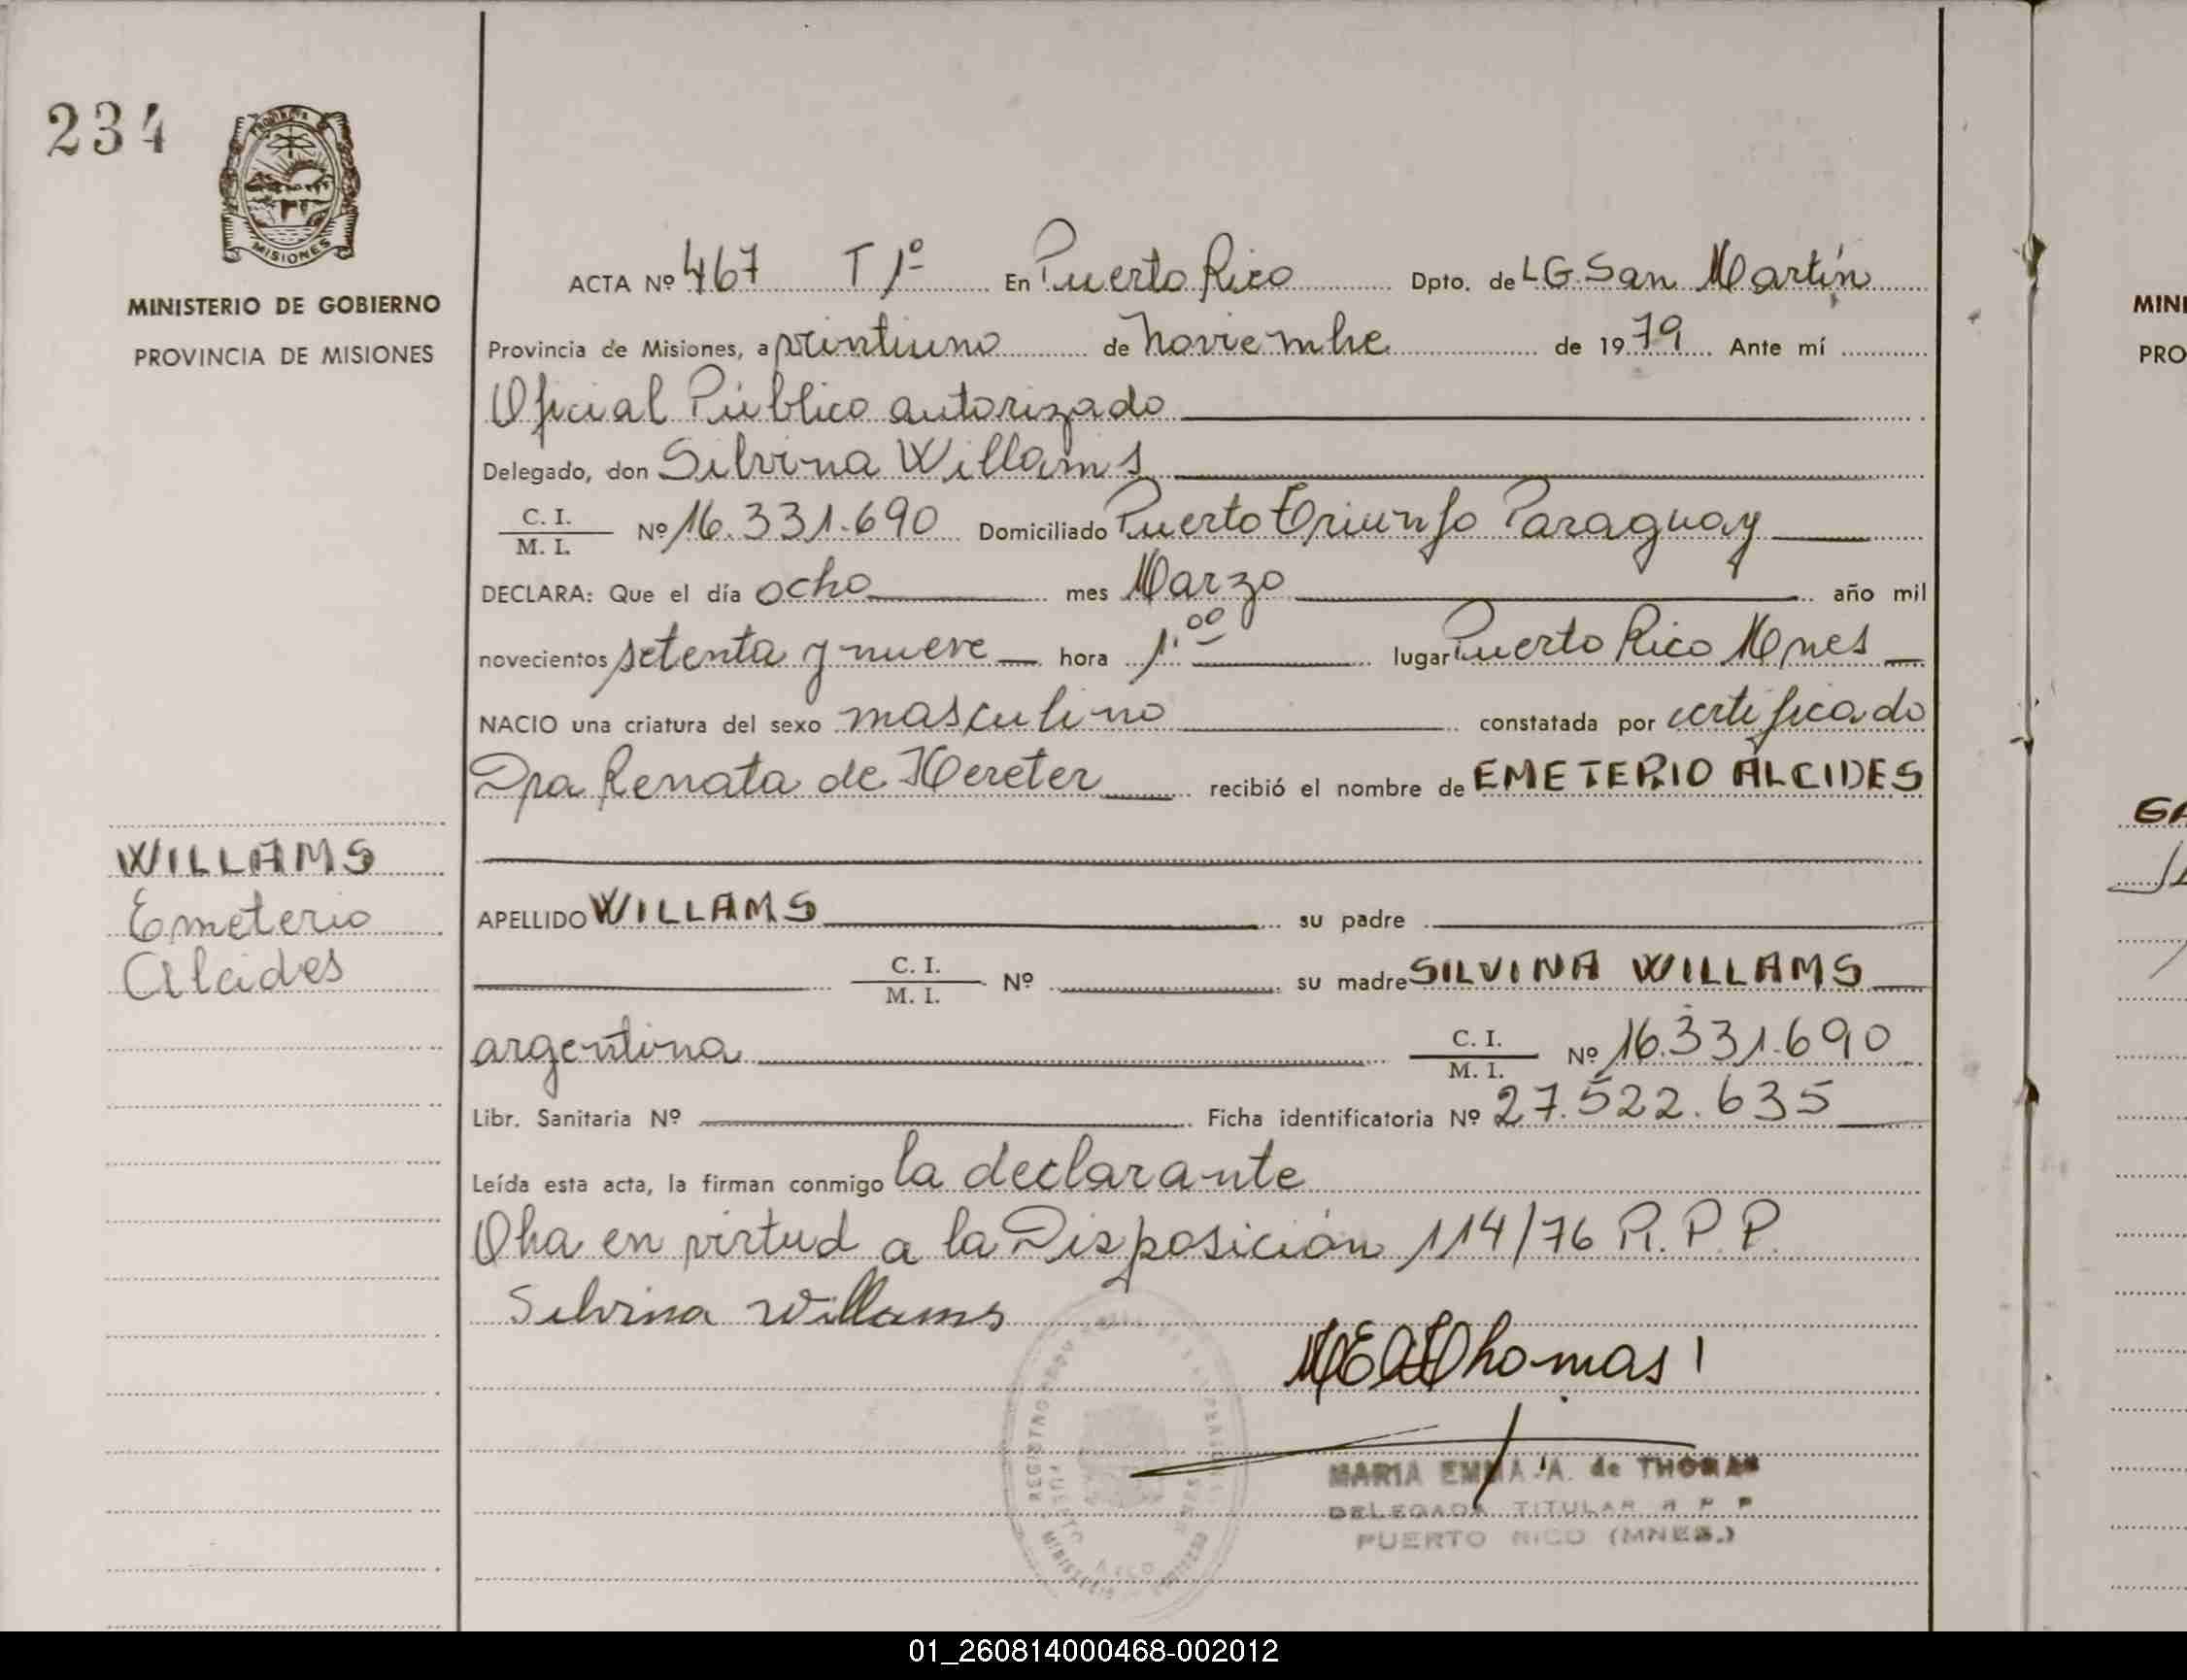 234
PROVINCIA
MISIONES
MINISTERIO DE GOBIERNO
PROVINCIA DE MISIONES
ACTA Nº 467 T 1º En Puerto Rico Dpto. de L G. San Martín
Provincia de Misiones, a veintiuno de Noviembre de 1979 Ante mí
Oficial Público autorizado
Delegado, don Silvina Willams
C. I.
M. I. Nº 16.331.690 Domiciliado Puerto Triunfo Paraguay
DECLARA: Que el día ocho mes Marzo año mil
novecientos setenta y nueve hora 1.00 lugar Puerto Rico Mnes
NACIO una criatura del sexo masculino constatada por certificado
Dra Renata de Hereter recibió el nombre de EMETERIO ALCIDES
WILLAMS
Emeterio
Alcides
APELLIDO WILLAMS su padre
C. I.
M. I. Nº su madre SILVINA WILLAMS
argentina C. I.
M. I. Nº 16.331.690
Libr. Sanitaria Nº Ficha identificatoria Nº 27.522.635
Leída esta acta, la firman conmigo la declarante
Oha en virtud a la Disposición 114/76 R.P.P.
Silvina Willams
MEAThomas
MARIA EMMA A. de THOMAS
DELEGADA TITULAR R P P
PUERTO RICO (MNES.)
MINI
PRO
GA
01_260814000468-002012